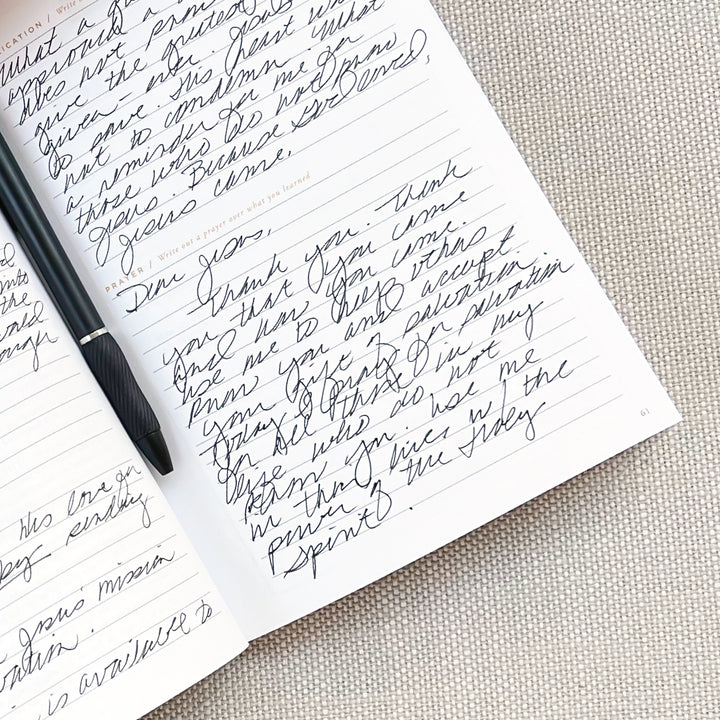 the
world
His love in
by sending
Jesus' mission
is available to
ICATION / Write
What a
a
does not
give the greatest
given - ever. Jesus
to save. His heart was
not to condemn. What
a reminder for me for
those who do not know
Jesus. Because God loved,
Jesus came.
PRAYER / Write out a prayer over what you learned
Dear Jesus,
Thank you. Thank
you that you came
and how you came.
Use me to help others
know you and accept
your gift of salvation.
Today I pray for salvation
for all those in my
life who do not
know you. Use me
in their lives w/ the
power of the Holy
Spirit.
61